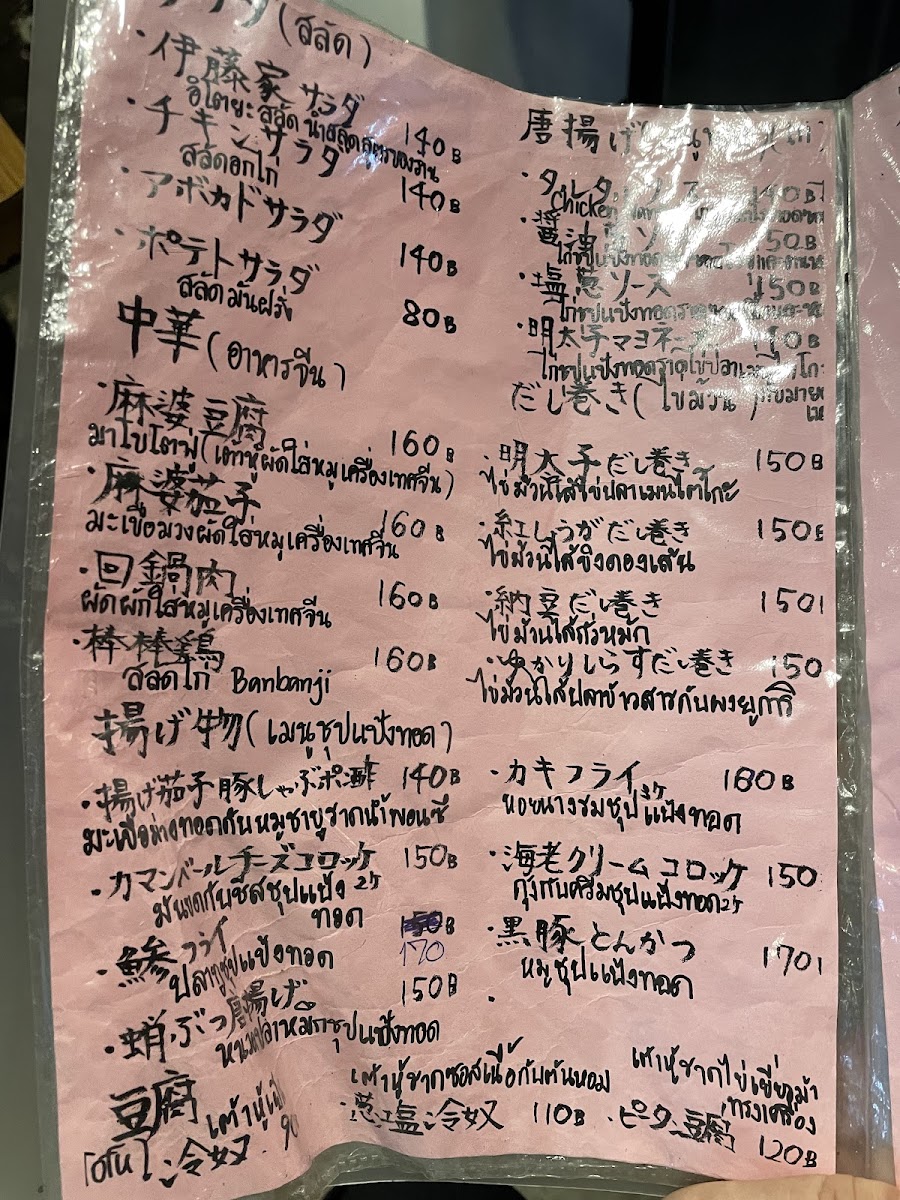 (สลัด)
・伊藤家サラダ 140B
อิโตยะสลัด น้ำสลัดสูตรของร้าน
・チキンサラダ 140B
สลัดอกไก่
・アボカドサラダ 140B
・ポテトサラダ 80B
สลัดมันฝรั่ง
中華(อาหารจีน)
・麻婆豆腐 160B
มาโบโตฟุ(เต้าหู้ผัดใส่หมูเครื่องเทศจีน)
・麻婆茄子 160B
มะเขือม่วงผัดใส่หมูเครื่องเทศจีน
・回鍋肉 160B
ผัดผักใส่หมูเครื่องเทศจีน
・棒棒鶏 160B
สลัดไก่ Banbanji
揚げ物(เมนูชุปแป้งทอด)
・揚げ茄子豚しゃぶポン酢 140B
มะเขือม่วงทอดกับหมูชาบูราดน้ำพอนซึ
・カマンベールチーズコロッケ 150B
มันบดกับชีสชุปแป้ง
ทอด
・鯵フライ 170
ปลาทูชุปแป้งทอด
・蛸ぶつ唐揚げ 150B
หนวดปลาหมึกชุปแป้งทอด
豆腐
冷奴 90
唐揚げ
Chicken
・醤油 50B
・塩葱ソース 150B
・明太子マヨネーズ
だし巻き(ไข่ม้วน)
・明太子だし巻き 150B
ไข่ม้วนไส้ไข่ปลาเมนไตโกะ
・紅しょうがだし巻き 150B
ไข่ม้วนไส้ขิงดองเส้น
・納豆だし巻き 150
ไข่ม้วนไส้ถั่วหมัก
・ゆかりしらすだし巻き 150
ไข่ม้วนไส้ปลาข้าวสารกับผงยูการิ
・カキフライ 180B
หอยนางรมชุปแป้งทอด
・海老クリームコロッケ 150
กุ้งกับครีมชุปแป้งทอด
・黒豚とんかつ 170
หมูชุปแป้งทอด
เต้าหู้ราดซอสเนื้อกับต้นหอม
・葱塩冷奴 110B
เต้าหู้ราดไข่เยี่ยวม้า
ทรงเครื่อง
・ピータン豆腐 120B